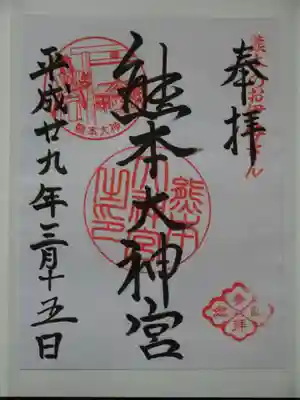 奉拝
熊本大神宮
平成廿九年三月十五日
熊本大神宮
参拝